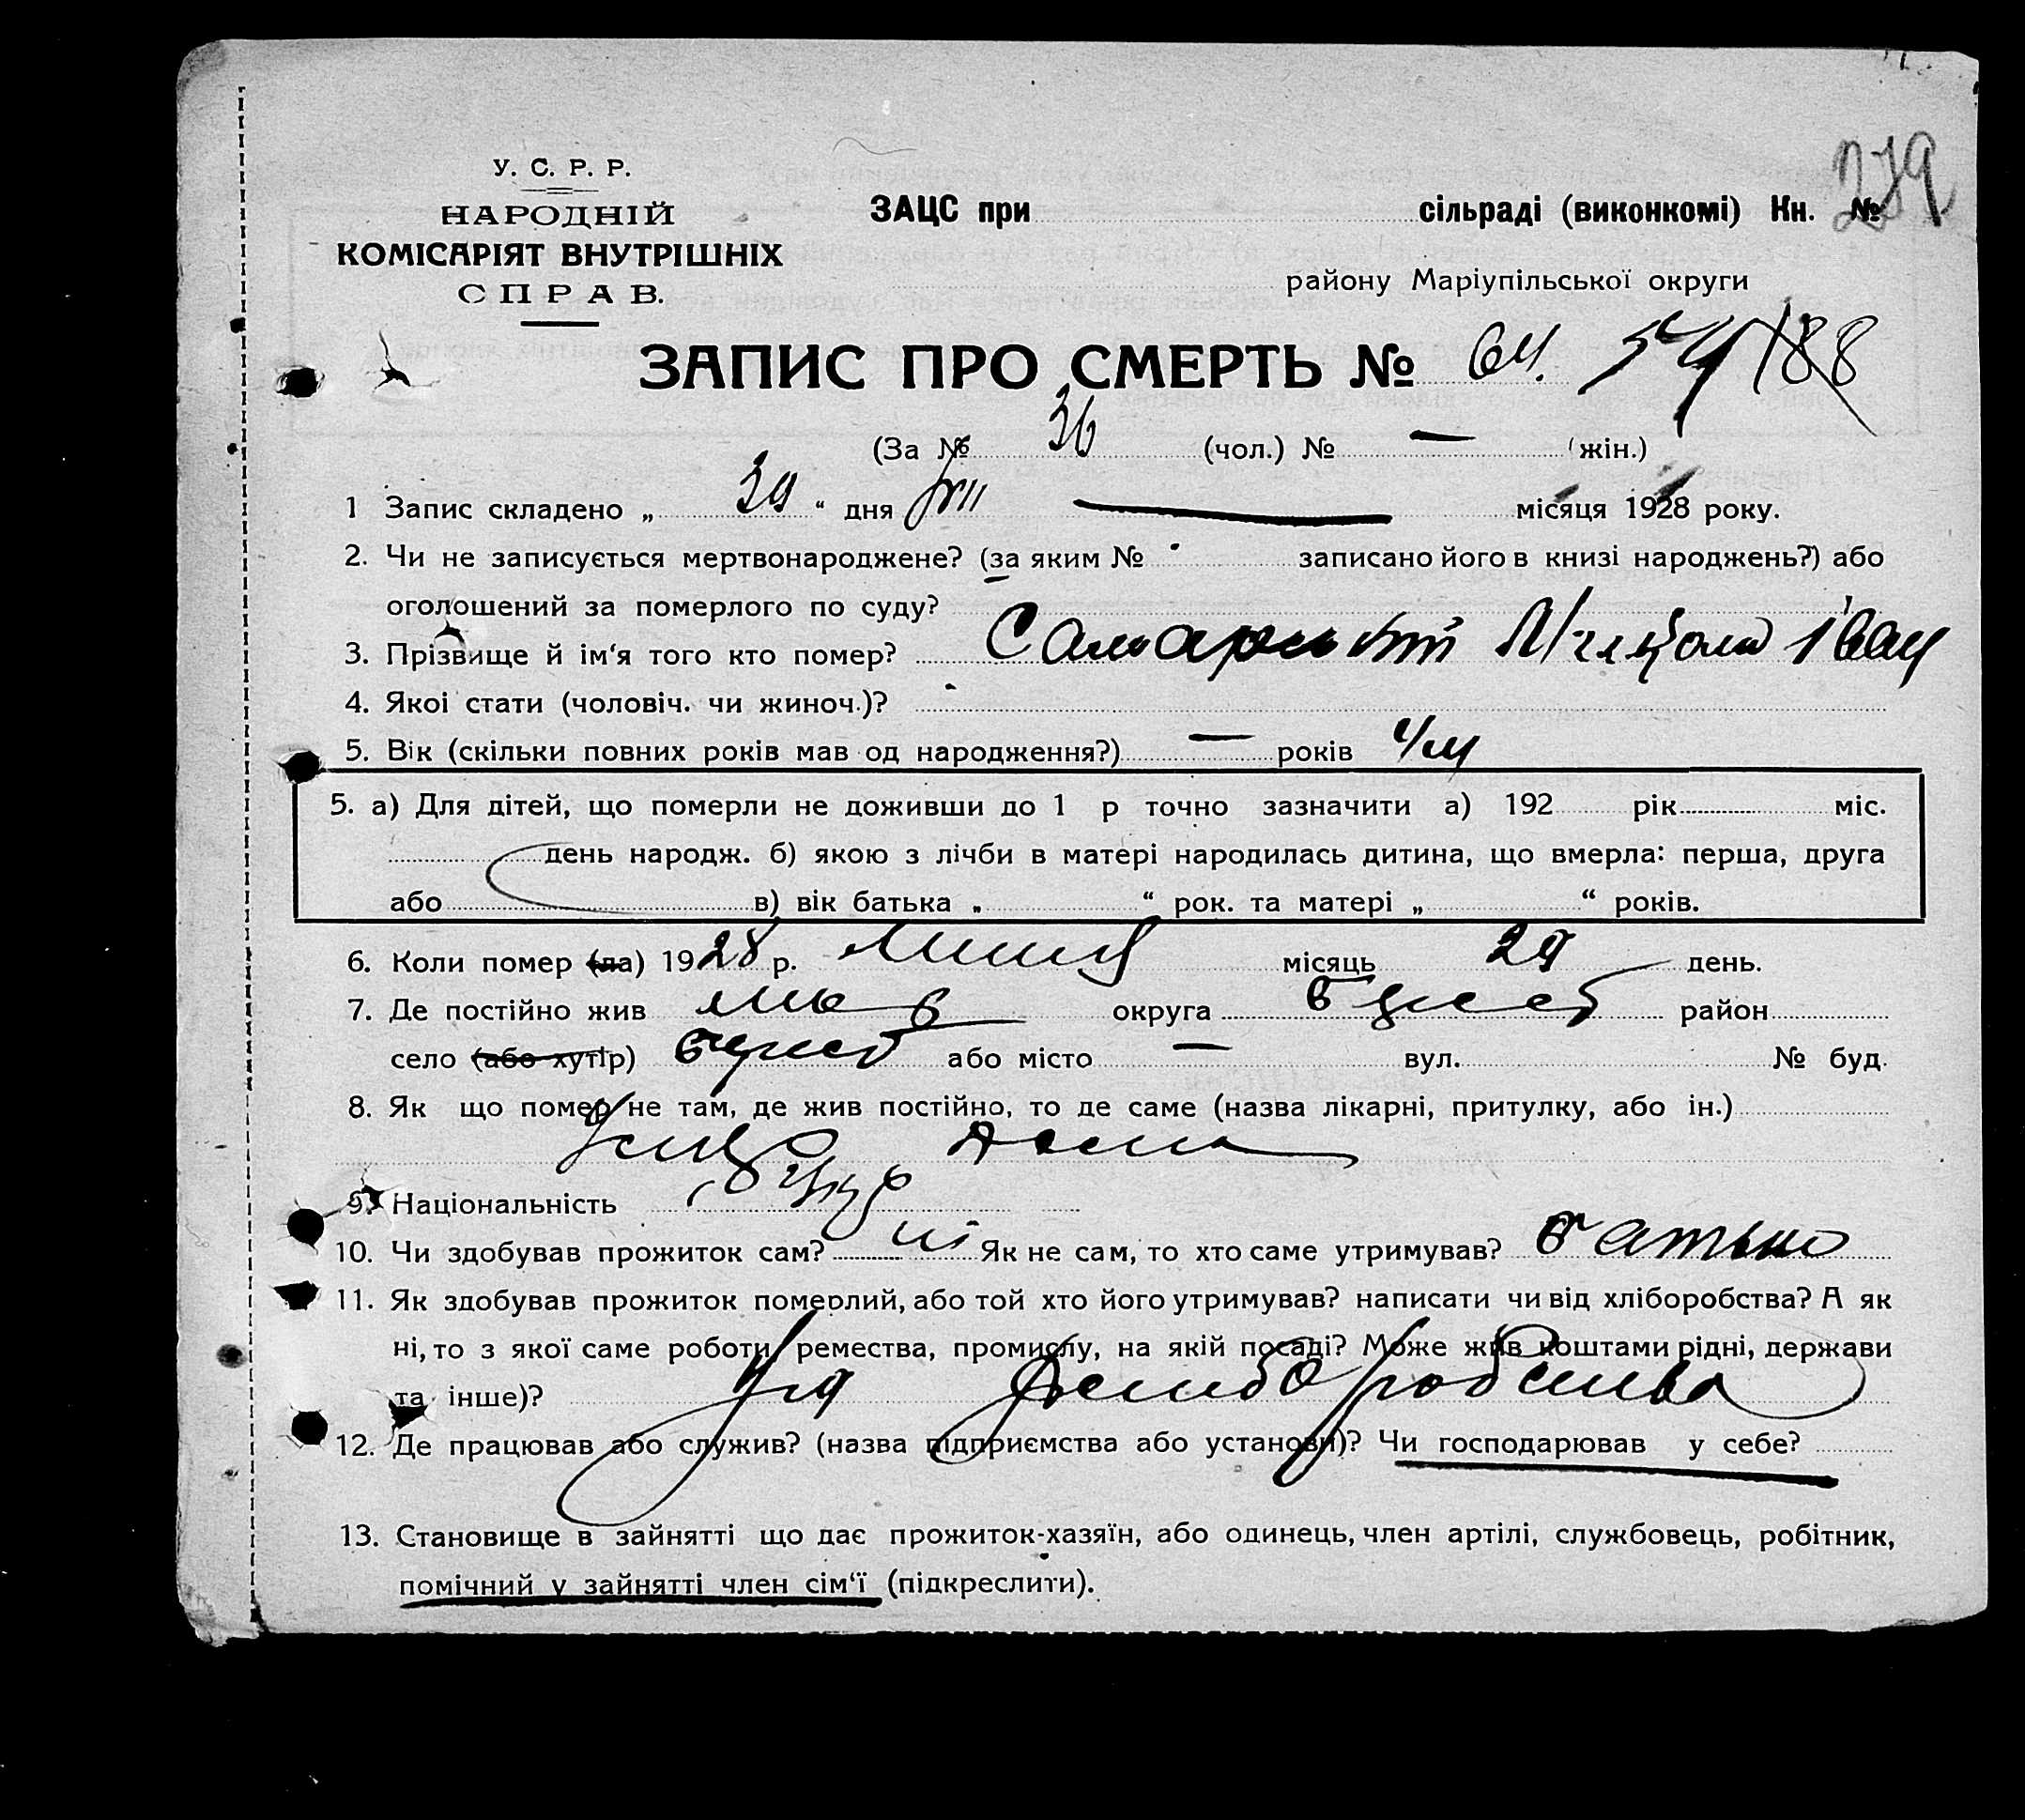 279
У. С. Р. Р.
НАРОДНІЙ
КОМІСАРІЯТ ВНУТРІШНІХ
СПРАВ.
ЗАЦС при сільраді (виконкомі) Кн. №
району Маріупільської округи
ЗАПИС ПРО СМЕРТЬ № 64. 54 188
(За № 36 (чол.) № — (жін.)
1 Запис складено „ 30 “ дня VII місяця 1928 року.
2. Чи не записується мертвонароджене? (за яким № записано його в книзі народжень?) або
оголошений за померлого по суду?
3. Прізвище й ім‘я того кто помер? Микола Іван
4. Якоі стати (чоловіч. чи жиноч.)?
5. Вік (скільки повних років мав од народження?) — років 4/м
5. а) Для дітей, що померли не доживши до 1 р точно зазначити а) 192 рік міс.
день народж. б) якою з лічби в матері народилась дитина, що вмерла: перша, друга
або в) вік батька „ “ рок. та матері „ “ років.
6. Коли помер (ла) 1928 р. липця місяць 29 день.
7. Де постійно жив округа район
село (або хутір) або місто — вул. № буд.
8. Як що помер не там, де жив постійно, то де саме (назва лікарні, притулку, або ін.)
дома
9. Національність
10. Чи здобував прожиток сам? ні Як не сам, то хто саме утримував? батько
11. Як здобував прожиток померлий, або той хто його утримував? написати чи від хліборобства? А як
ні, то з якої саме роботи, ремества, промислу, на якій посаді? Може жив коштами рідні, держави
та інше)? хліборобства
12. Де працював або служив? (назва підприємства або установи)? Чи господарював у себе?
13. Становище в зайнятті що дає прожиток-хазяїн, або одинець, член артілі, службовець, робітник,
помічний у зайнятті член сім‘ї (підкреслити).